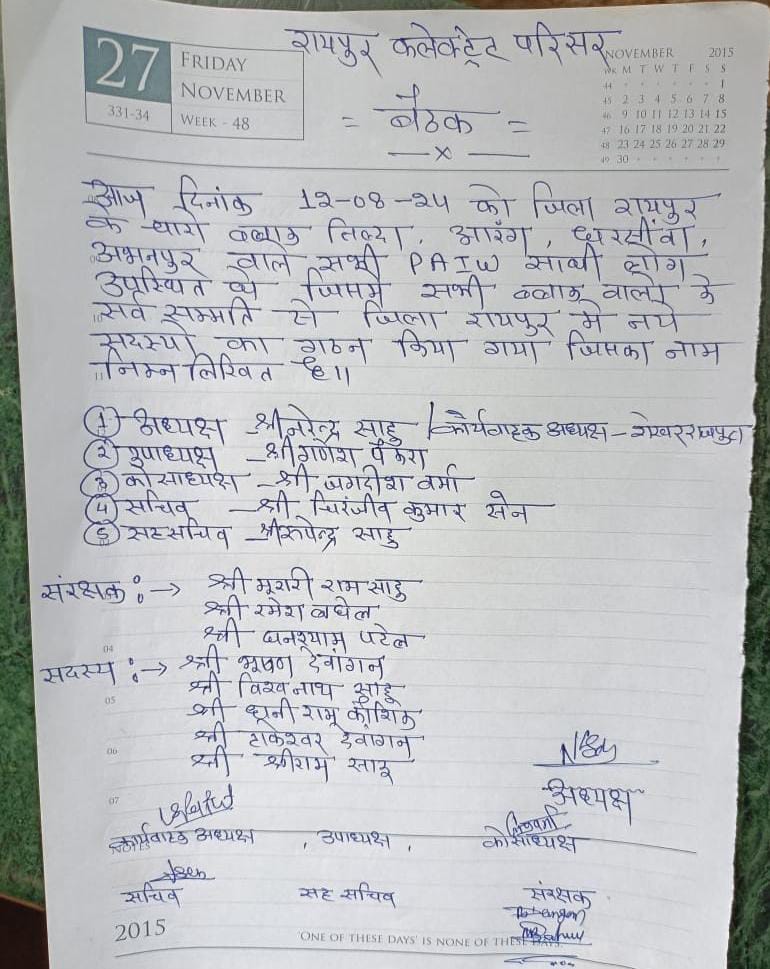 रायपुर कलेक्ट्रेट परिसर
27
FRIDAY
NOVEMBER
331-34
WEEK - 48
NOVEMBER 2015
WK M T W T F S S
44 · · · · · · 1
45 2 3 4 5 6 7 8
46 9 10 11 12 13 14 15
47 16 17 18 19 20 21 22
48 23 24 25 26 27 28 29
49 30 · · · · · ·
= बैठक =
— x —
आज दिनांक 12-08-24 को जिला रायपुर
के चारो ब्लाक तिल्दा, आरंग, धरसींवा,
अभनपुर वाले सभी PAIW साथी लोग
उपस्थित थे जिसमे सभी ब्लाक वालो के
सर्व सम्मति से जिला रायपुर मे नये
सदस्यो का गठन किया गया जिसका नाम
निम्न लिखित है।।
① अध्यक्ष - श्री नरेन्द्र साहु / कार्यवाहक अध्यक्ष - शेखर राजपुत
② उपाध्यक्ष - श्री गणेश पैकरा
③ कोसाध्यक्ष - श्री जगदीश वर्मा
④ सचिव - श्री चिरंजीव कुमार सेन
⑤ सहसचिव - श्री रूपेन्द्र साहु
संरक्षक :→ श्री मूरारी राम साहु
श्री रमेश बघेल
04
श्री घनश्याम पटेल
सदस्य :→ श्री भूषण देवांगन
श्री विश्वनाथ साहू
05
श्री धूनी राम कौशिक
श्री टाकेश्वर देवांगन
06
श्री श्रीराम साहू
अध्यक्ष
07
कार्यवाहक अध्यक्ष , उपाध्यक्ष , कोसाध्यक्ष
NOTES
सचिव सह सचिव संरक्षक
2015
'ONE OF THESE DAYS' IS NONE OF THESE DAYS.